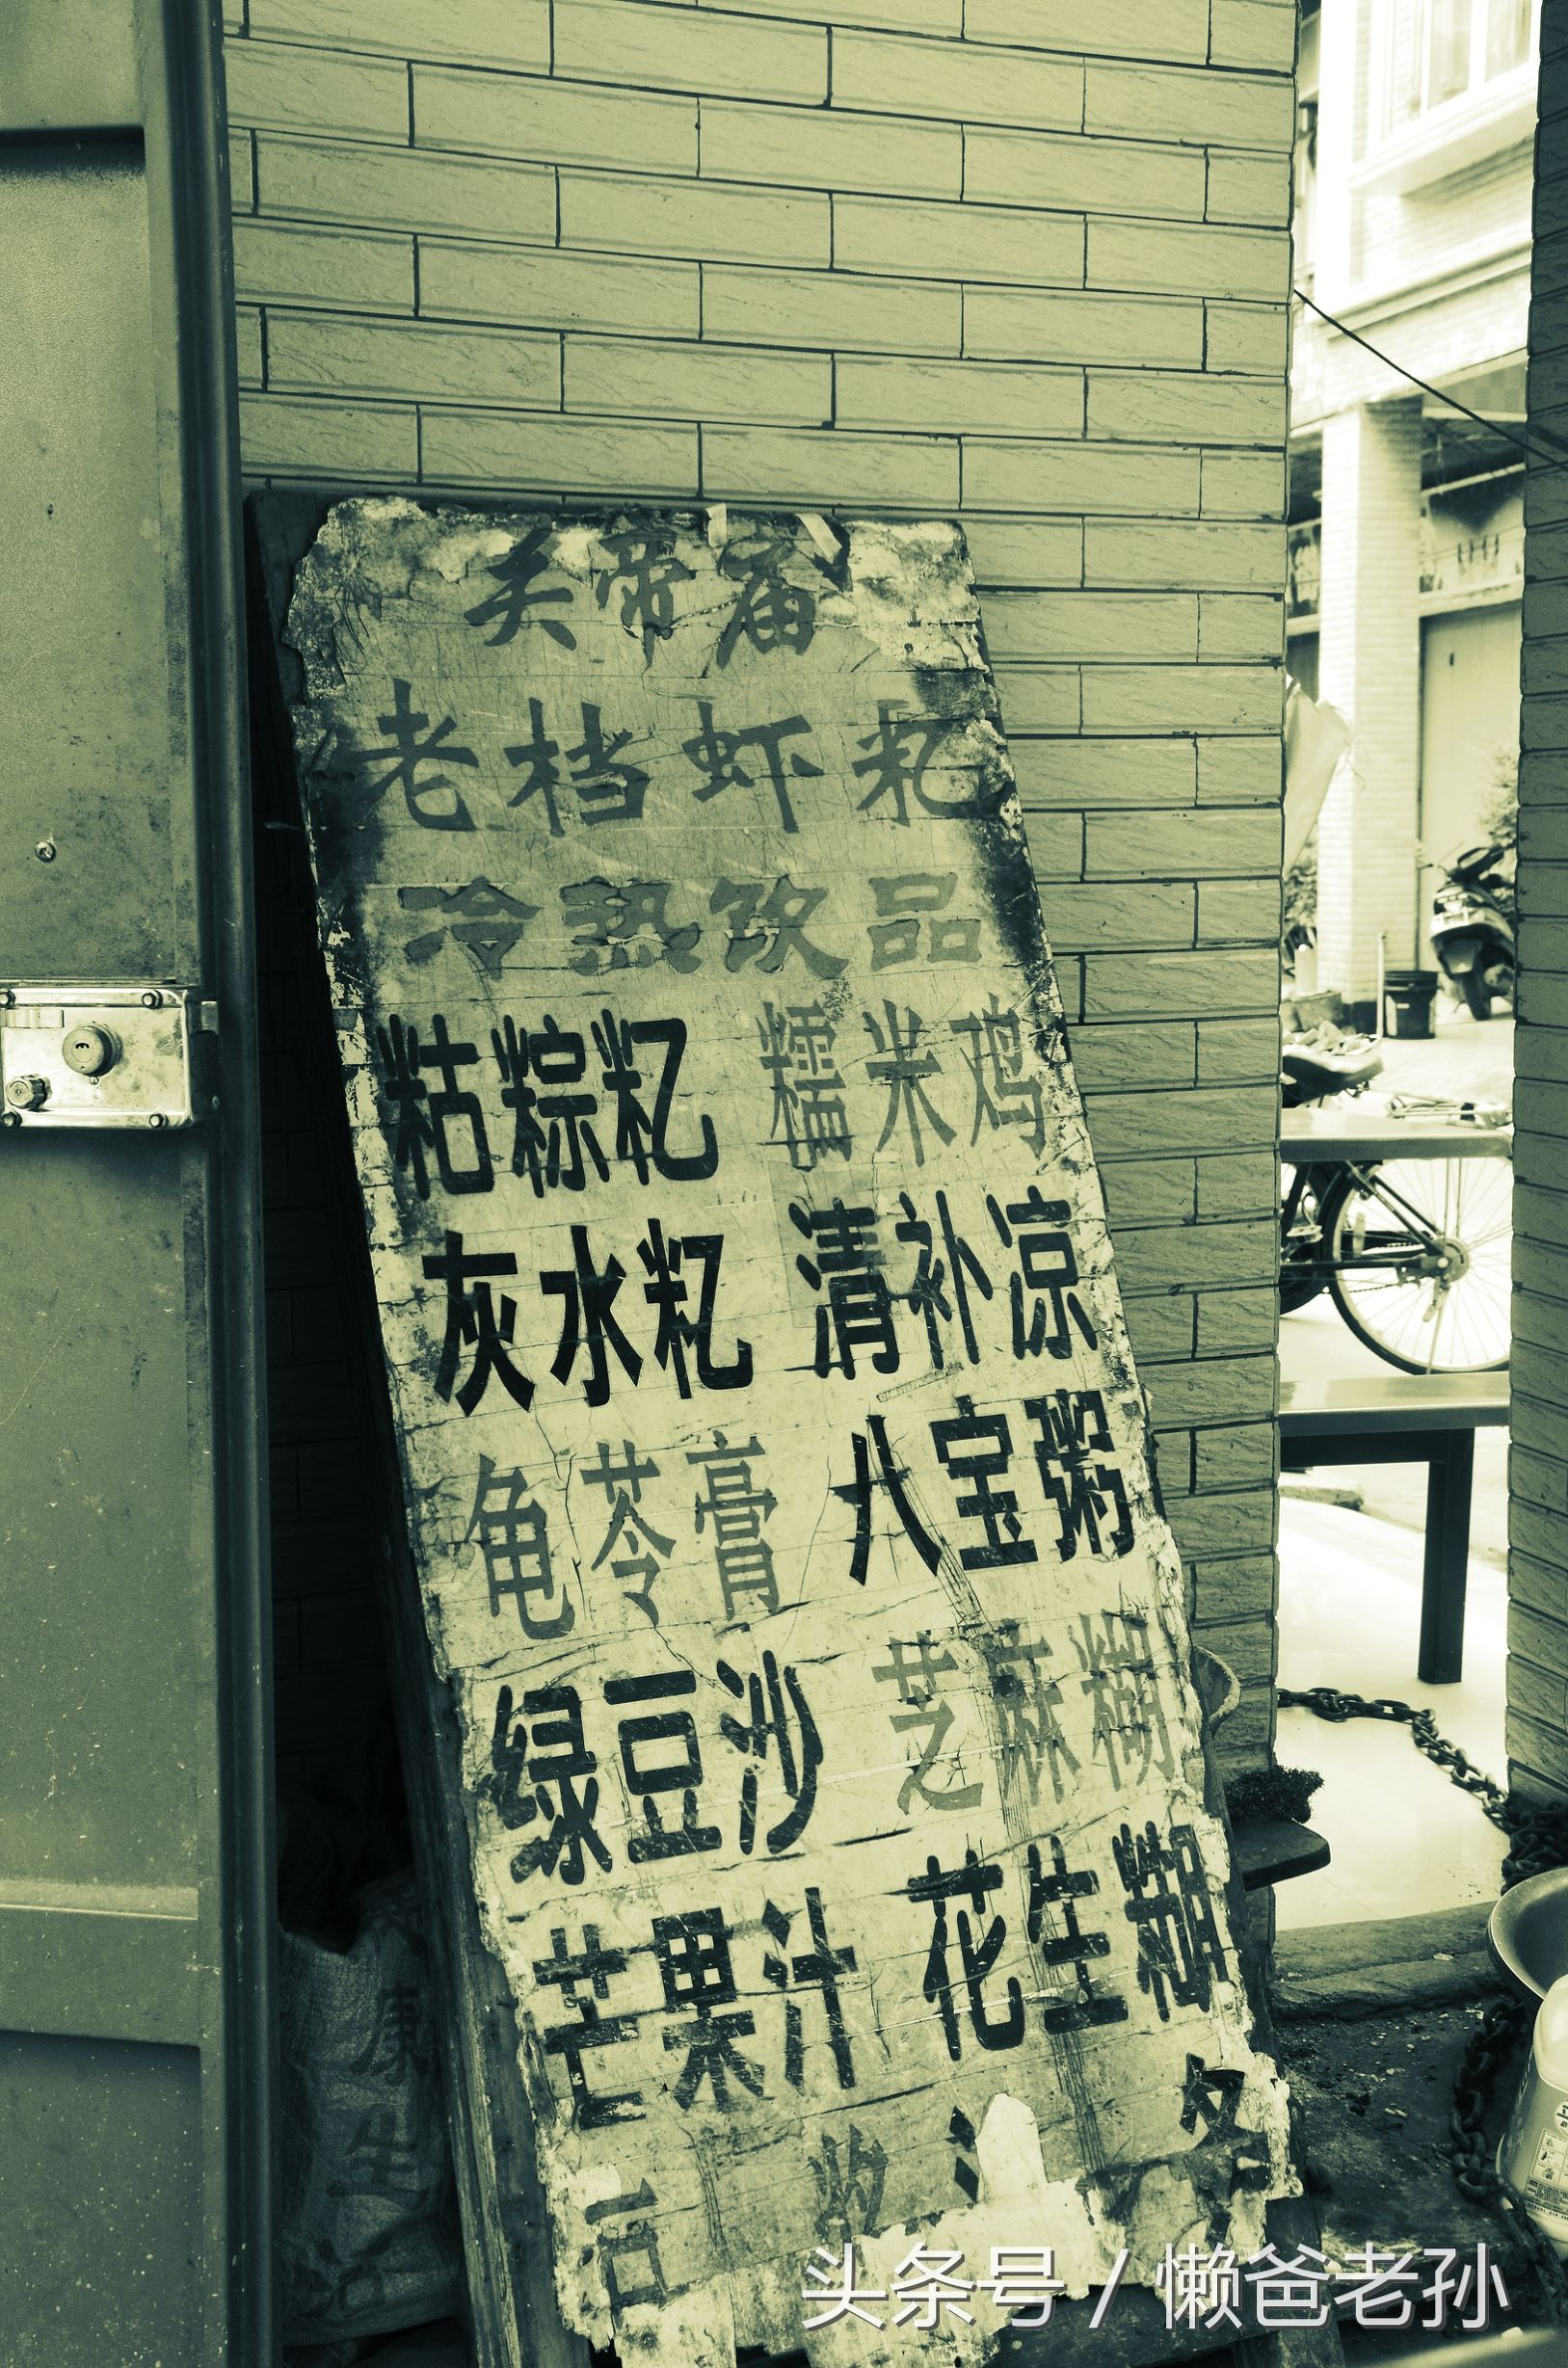 关帝庙
老档虾籺
冷热饮品
粘粽籺 糯米鸡
灰水籺 清补凉
龟苓膏 八宝粥
绿豆沙 芝麻糊
芒果汁 花生糊
康生
头条号 / 懒爸老孙